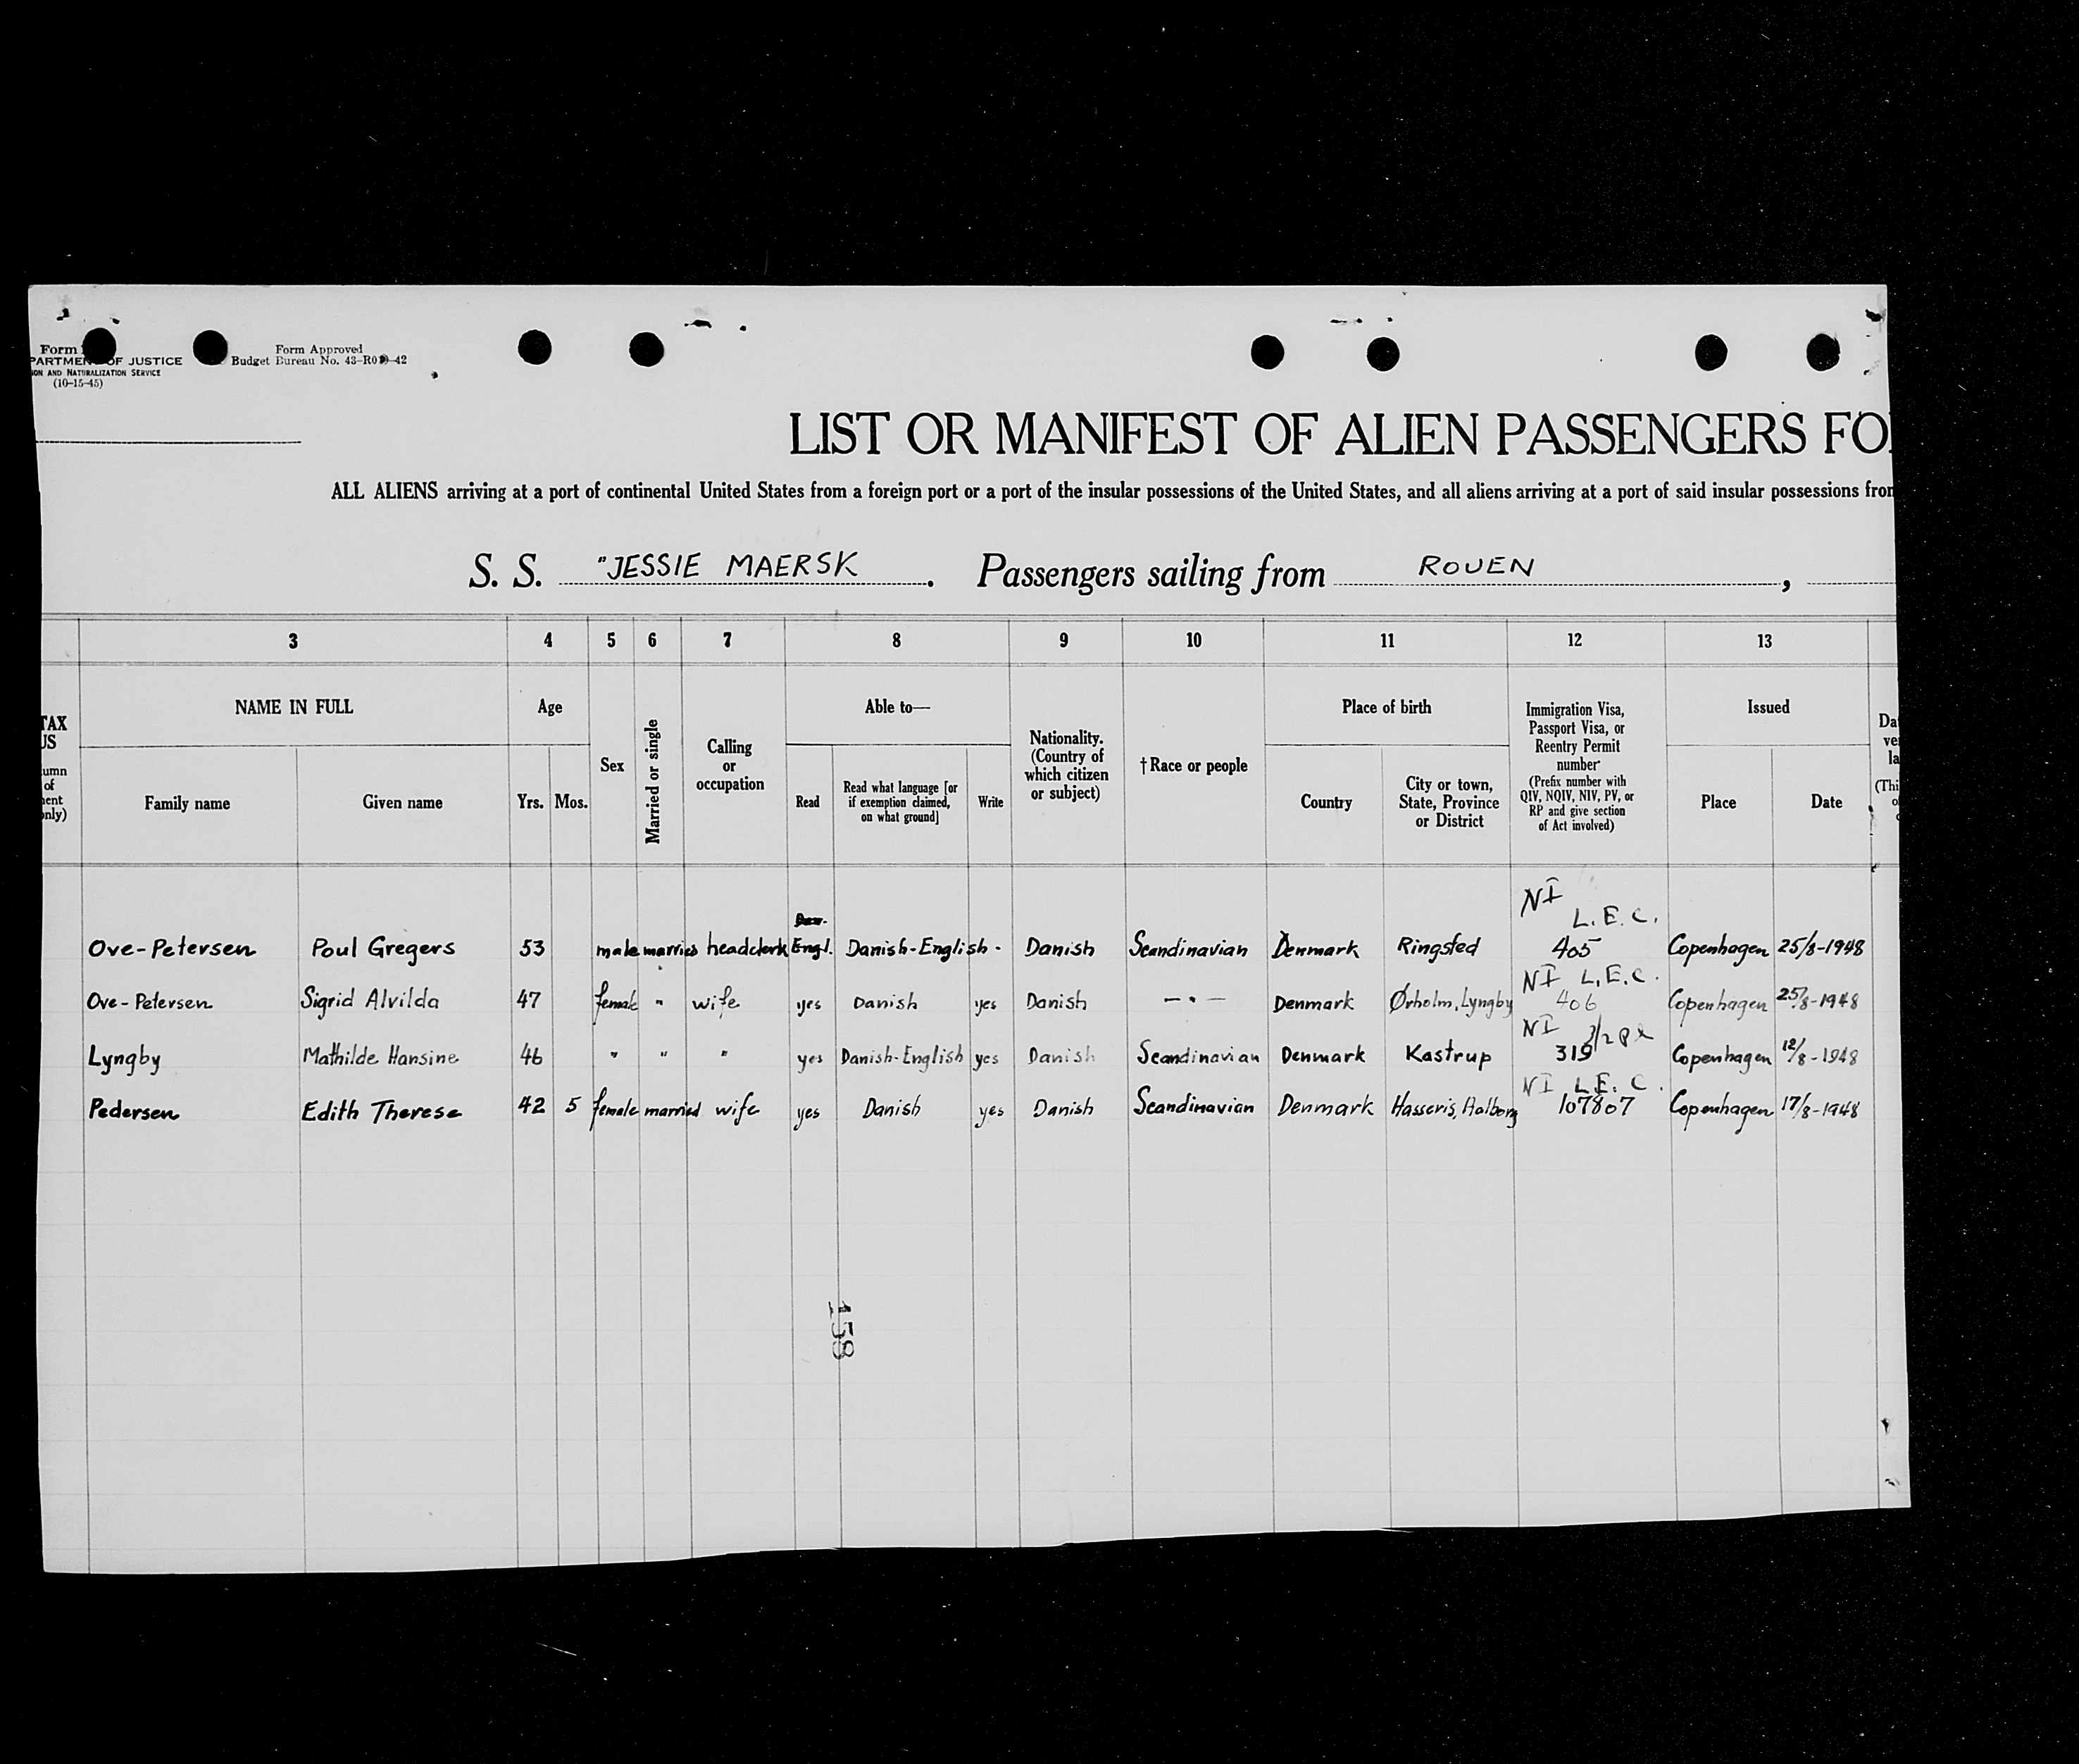 Form
PARTMENT OF JUSTICE
ION AND NATURALIZATION SERVICE
(10-15-45)
Form Approved
Budget Bureau No. 43-R0 -42
LIST OR MANIFEST OF ALIEN PASSENGERS FO
ALL ALIENS arriving at a port of continental United States from a foreign port or a port of the insular possessions of the United States, and all aliens arriving at a port of said insular possessions from
S. S. "JESSIE MAERSK . Passengers sailing from ROUEN ,
3 4 5 6 7 8 9 10 11 12 13
TAX
US
umn
of
ent
only)
NAME IN FULL
Family name Given name
Age
Yrs. Mos.
Sex
Married or single
Calling
or
occupation
Able to—
Read
Read what language [or
if exemption claimed,
on what ground]
Write
Nationality.
(Country of
which citizen
or subject)
†Race or people
Place of birth
Country
City or town,
State, Province
or District
Immigration Visa,
Passport Visa, or
Reentry Permit
number
(Prefix number with
QIV, NQIV, NIV, PV, or
RP and give section
of Act involved)
Issued
Place Date
Da
ve
la
(Thi
o
NI
L.E.C.
Ove-Petersen Poul Gregers 53 male married headclerk Engl. Danish-English - Danish Scandinavian Denmark Ringsted 405 Copenhagen 25/8-1948
NI L.E.C.
Ove-Petersen Sigrid Alvilda 47 female " wife yes Danish yes Danish —"— Denmark Ørholm, Lyngby 406 Copenhagen 25/8-1948
NI 3/2
Lyngby Mathilde Hansine 46 " " " yes Danish-English yes Danish Scandinavian Denmark Kastrup 319 Copenhagen 12/8-1948
NI L.E.C.
Pedersen Edith Therese 42 5 female married wife yes Danish yes Danish Scandinavian Denmark Hasseris, Aalborg 107807 Copenhagen 17/8-1948
158